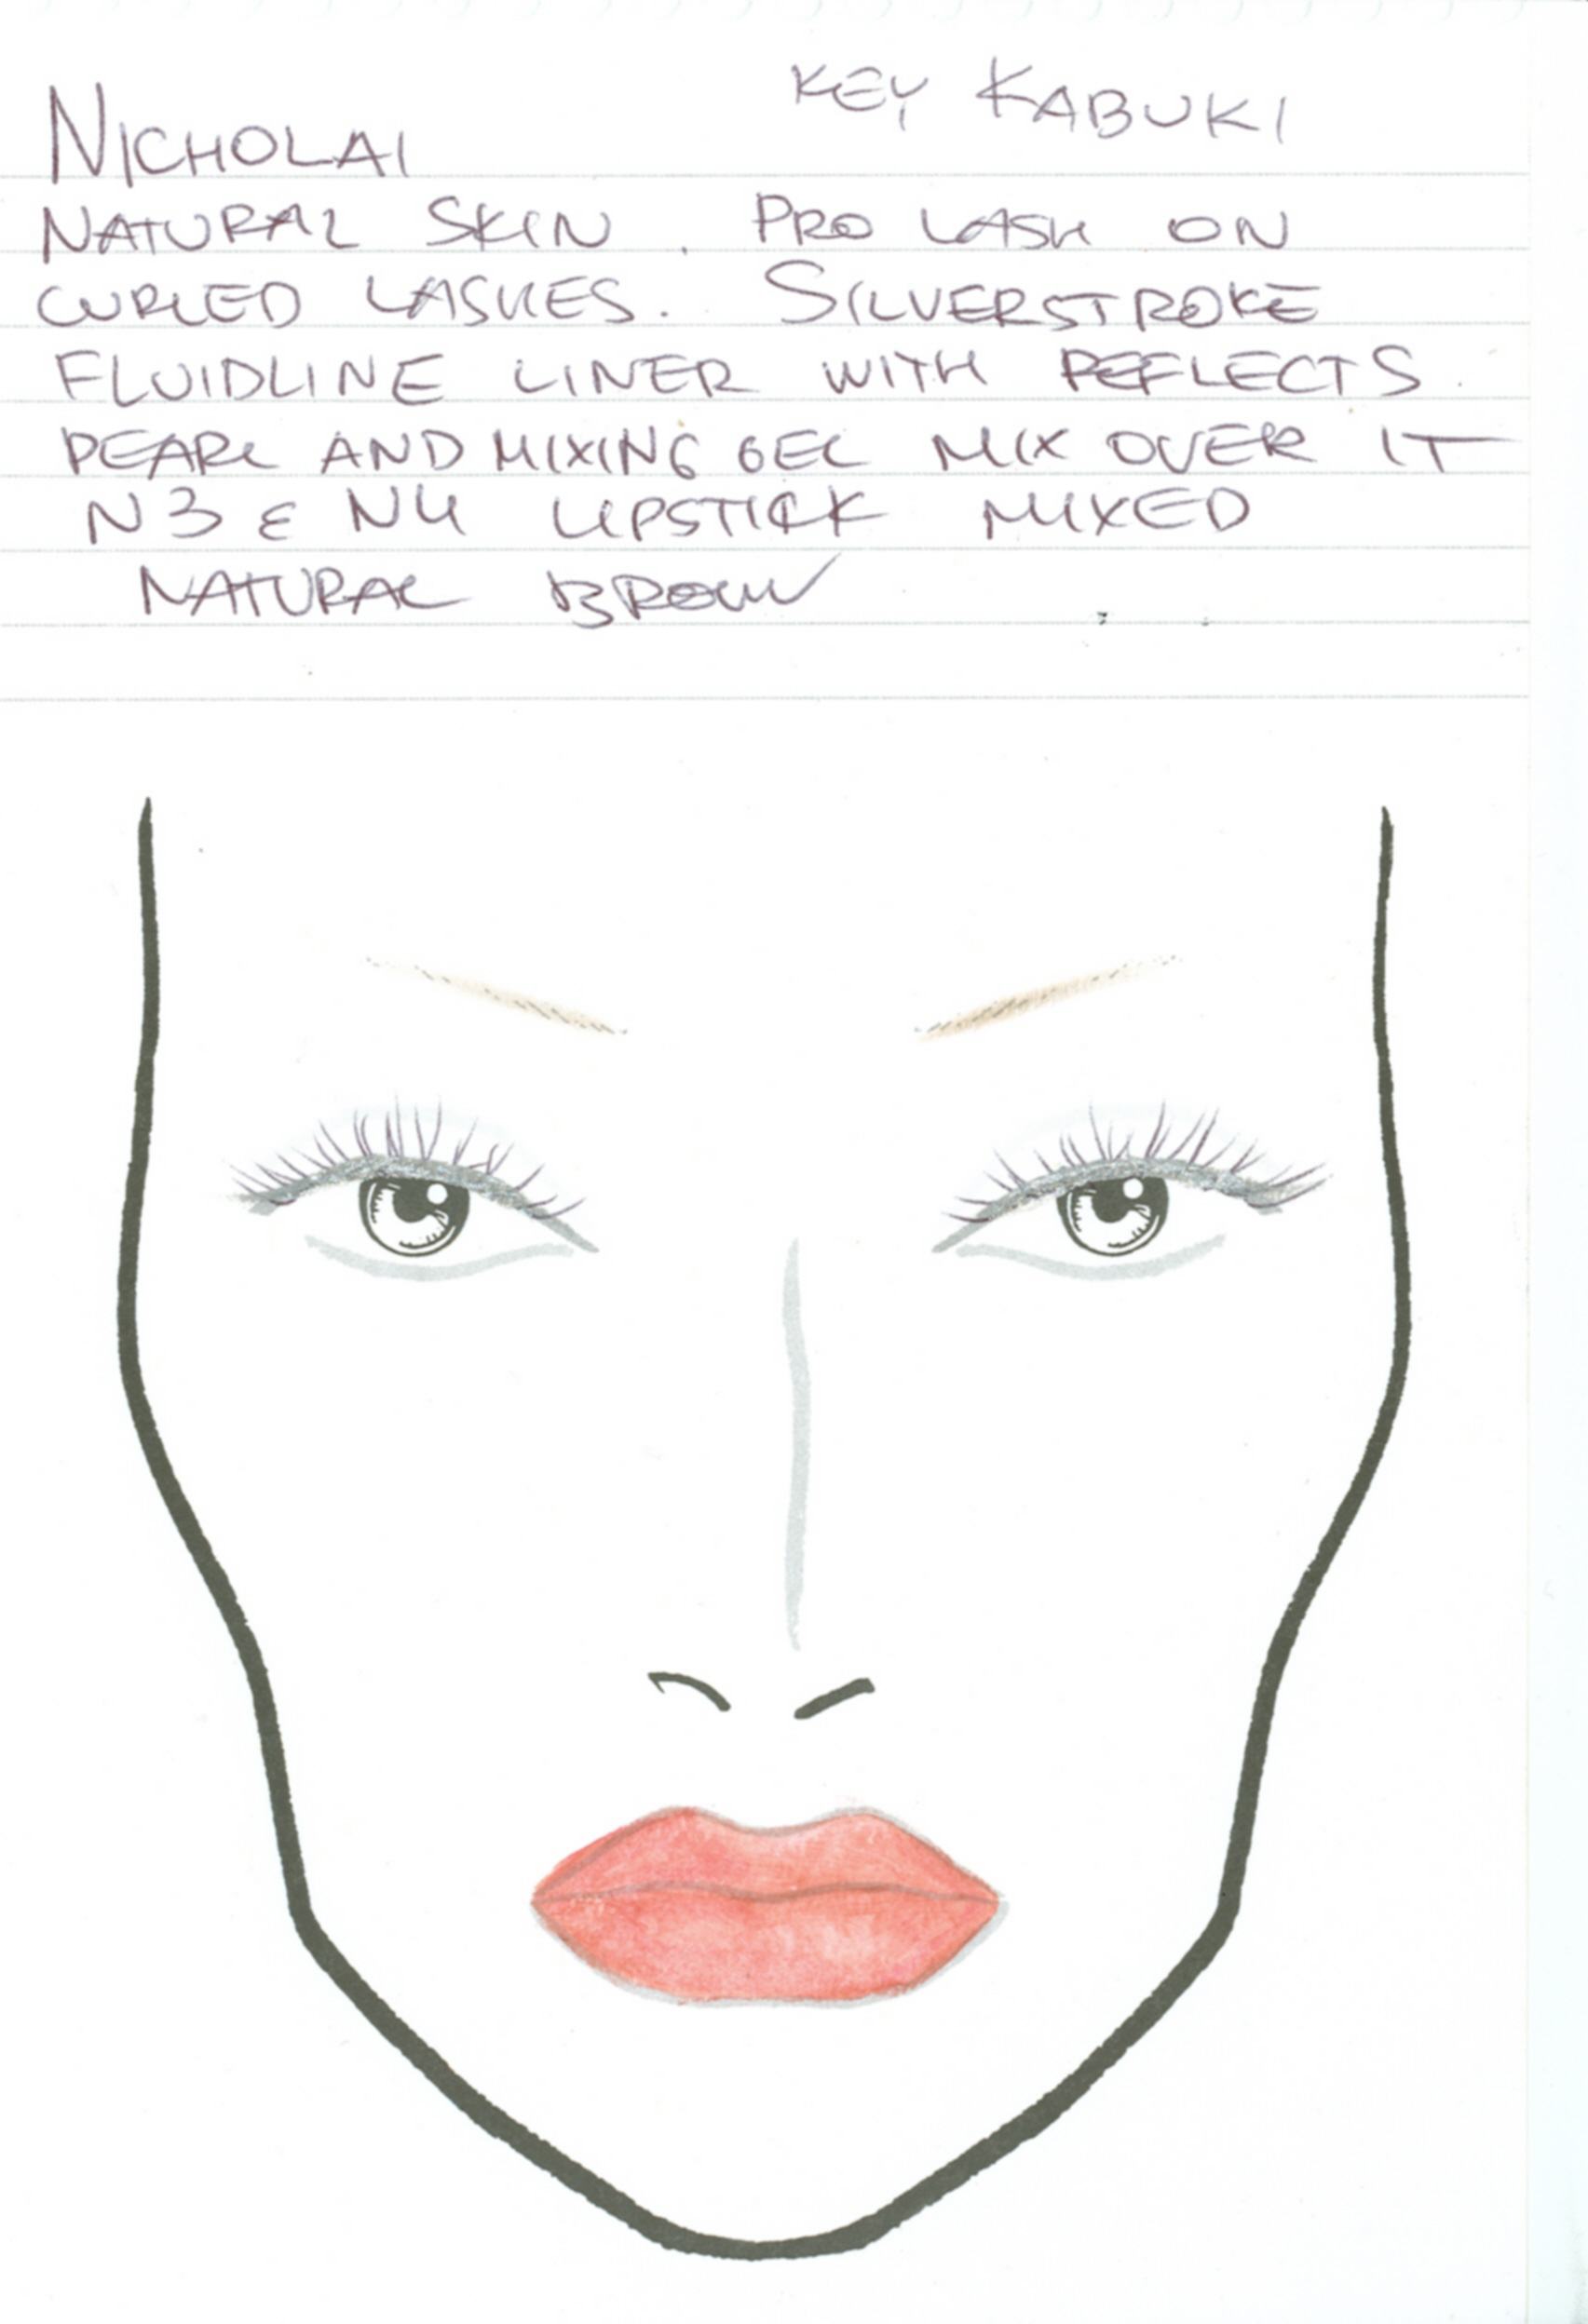 KEY KABUKI
NICHOLAI
NATURAL SKIN. PRO LASH ON
CURLED LASHES. SILVERSTROKE
FLUIDLINE LINER WITH REFLECTS
PEARL AND MIXING GEL MIX OVER IT
N3 & N4 LIPSTICK MIXED
NATURAL BROW